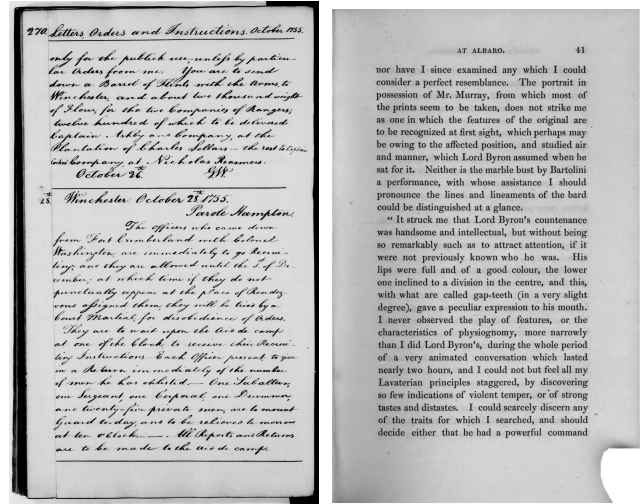 270. Letters Orders and Instructions. October 1755.
only for the publick use, unless by particu-
lar Orders from me. You are to send
down a Barrel of Flints with the Arms, to
Winchester, and about two thousand weight
of Flour, for the two Companies of Rangers;
twelve hundred of which to be delivered
Captain Ashby and Company, at the
Plantation of Charles Sellars - the rest to Captain
Cockes Company, at Nicholas Reasmers.
October 26. GW
28th Winchester: October 28th 1755.
Parole Hampton.
The Officers who came down
from Fort Cumberland with Colonel
Washington, are immediately to go Recrui-
ting; and they are allowed until the 1st of De-
cember, at which time if they do not
punctually appear at the place of Rendez-
vous assigned them, they will be tried by a
Court Martial, for disobedience of Orders.
They are to wait upon the Aid de camp
at one of the Clock, to receive their Recrui-
ting Instructions. Each Officer present to give
in a Return immediately of the number
of men he has enlisted. - One Subaltern,
one Sergeant, one Corporal, one Drummer,
and twenty-five private men, are to mount
Guard to day, and to be relieved to morrow
at ten o'Clock. All Reports and Returns
are to be made to the Aid de camp.
AT ALBARO. 41
nor have I since examined any which I could
consider a perfect resemblance. The portrait in
possession of Mr. Murray, from which most of
the prints seem to be taken, does not strike me
as one in which the features of the original are
to be recognized at first sight, which perhaps may
be owing to the affected position, and studied air
and manner, which Lord Byron assumed when he
sat for it. Neither is the marble bust by Bartolini
a performance, with whose assistance I should
pronounce the lines and lineaments of the bard
could be distinguished at a glance.
"It struck me that Lord Byron's countenance
was handsome and intellectual, but without being
so remarkably such as to attract attention, if it
were not previously known who he was. His
lips were full and of a good colour, the lower
one inclined to a division in the centre, and this,
with what are called gap-teeth (in a very slight
degree), gave a peculiar expression to his mouth.
I never observed the play of features, or the
characteristics of physiognomy, more narrowly
than I did Lord Byron's, during the whole period
of a very animated conversation which lasted
nearly two hours, and I could not but feel all my
Lavaterian principles staggered, by discovering
so few indications of violent temper, or of strong
tastes and distastes. I could scarcely discern any
of the traits for which I searched, and should
decide either that he had a powerful command